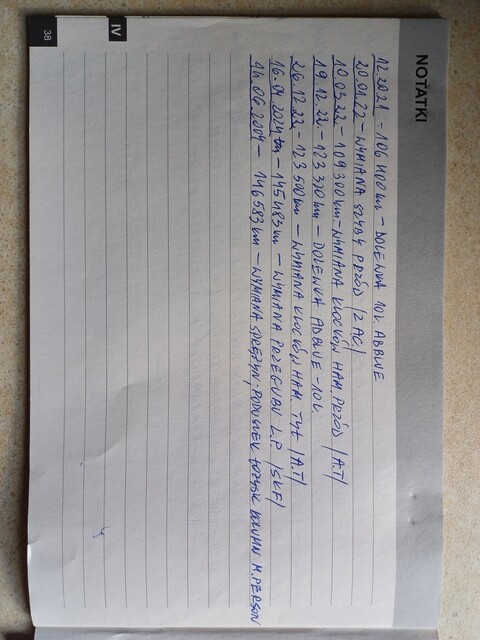 NOTATKI
12.2021 - 106 400 km - DOLEWKA 10L ADBLUE
20.01.22 - WYMIANA SZYBY PRZÓD /Z AC/
10.03.22 - 109 300 km - WYMIANA KLOCKÓW HAM. PRZÓD /A.T/
19.12.22 - 123 320 km - DOLEWKA ADBLUE - 10L
26.12.22 - 123 500 km - WYMIANA KLOCKÓW HAM. TYŁ /A.T/
16.04.2024 - 145 483 km - WYMIANA PRZEGUBU L.P. /SKF/
146 583 km - WYMIANA SPRĘŻYN, PODUSZEK ŁOŻYSK KOLUMN M.PERSON
IV
38